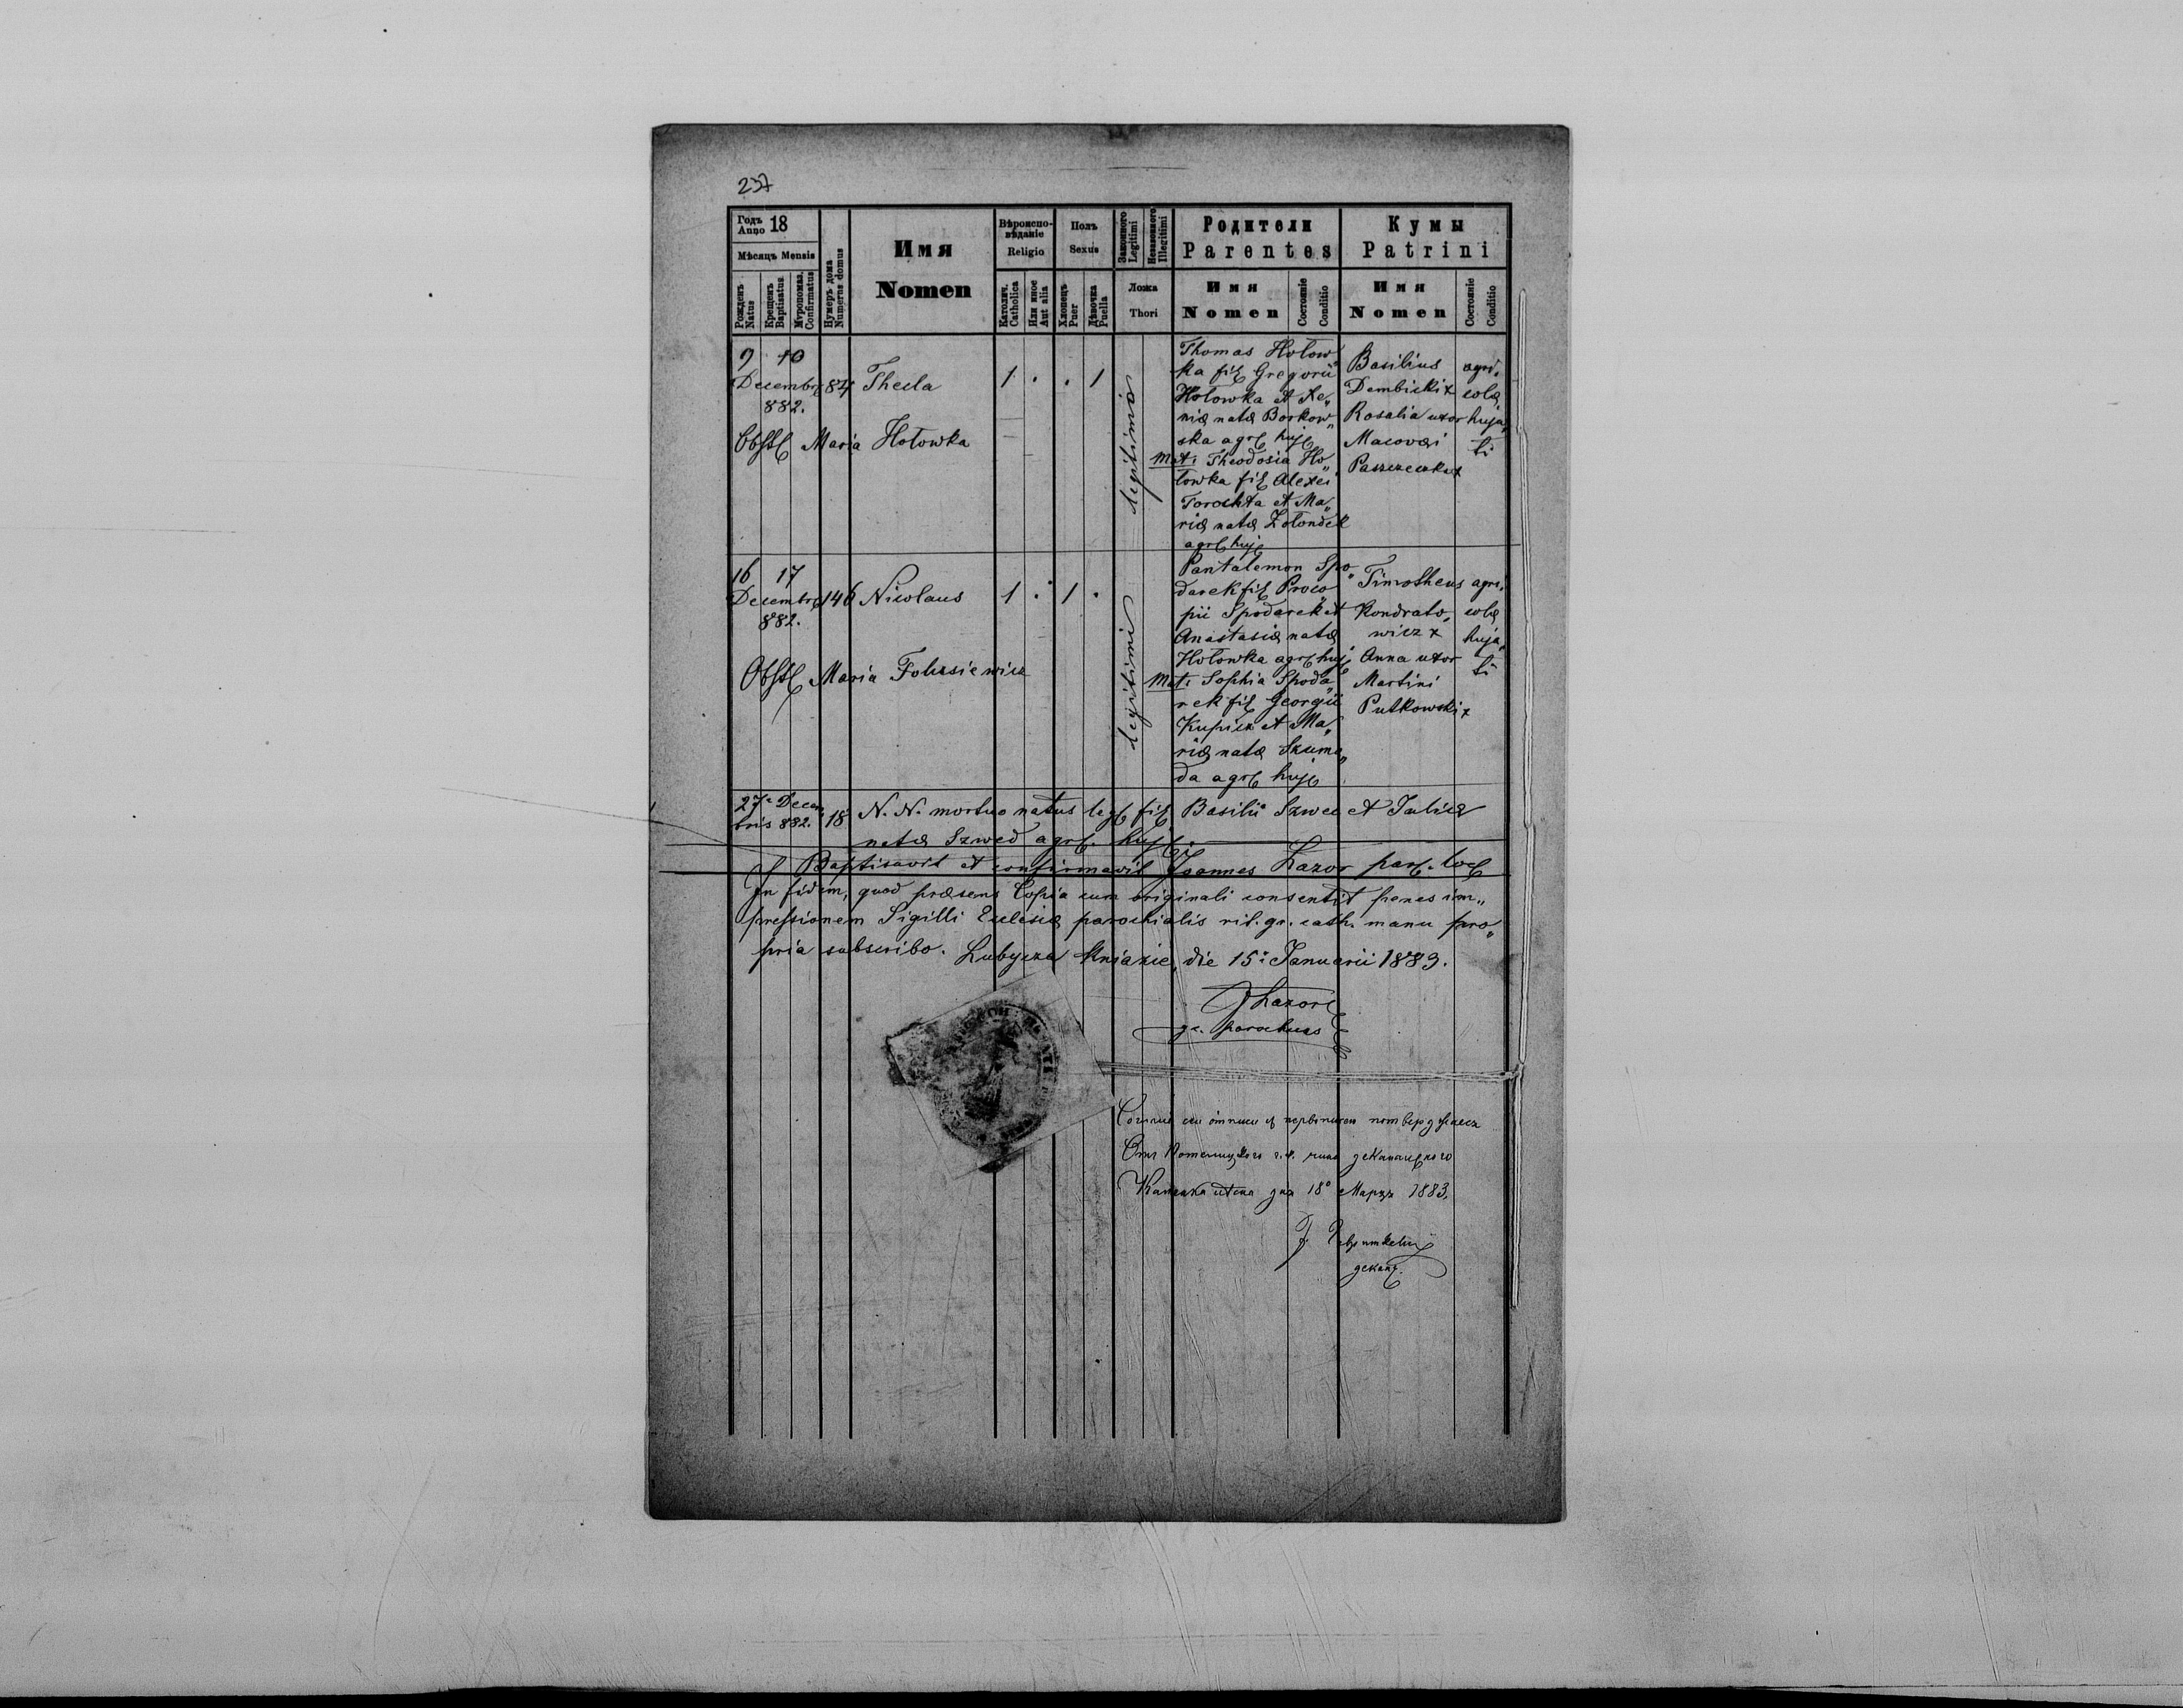 237
Годъ Anno 18
Мѣсяцъ Mensis
Рожденъ Natus
Крещенъ Baptisatus
Мѵропомаз. Confirmatus
Нумеръ дома Numerus domus
Имя
Nomen
Вѣроиспо-
вѣданіе
Religio
Католич. Catholica
Или иное Aut alia
Полъ
Sexus
Хлопець Puer
Дѣвочка Puella
Законного Legitimi
Незаконного Illegitimi
Ложа
Thori
Родители
Parentes
Имя
Nomen
Состояніе Conditio
Кумы
Patrini
Имя
Nomen
Состояніе Conditio
9 10
Decembr 84 Thecla 1 . . 1
882.
Obst Maria Hołowka
legitimi
Thomas Hołow„
ka fil Gregorii
Hołowka et Xe„
niæ natæ Borkow„
ska agr huj
Mat: Theodosia Ho„
łowka fil Alexei
Torochta et Ma„
riæ natæ Zołondek
agr huj
Basilius
Dembicki x
Rosalia uxor
Macovei
Paszeczka x
agri„
colæ
huja„
ti
16 17
Decembr 146 Nicolaus 1 . 1 .
882.
Obst Maria Folusiewicz
legitimi
Pantalemon Spo„
darek fil Proco„
pii Spodarek et
Anastasiæ natæ
Hołowka agr huj
Mat: Sophia Spoda„
rek fil Georgii
Kupicz et Ma„
riæ natæ Szuma„
da agr huj
Timotheus
Kondrato„
wicz x
Anna uxor
Martini
Putkowski x
agri„
colæ
huja„
ti
27 Decem„
bris 882. 18 N. N. mortuo natus leg fil Basilii Szwec et Juliæ
natæ Szwed agr. huj
Baptisavit et confirmavit Joannes Lazor par. loc
In fidem, quod præsens Copia cum originali consentit penes im„
pressionem Sigilli Ecclesiæ parochialis rit. gr. cath. manu pro„
pria subscribo. Lubycza Kniazie, die 15: Januarii 1883.
J Lazor
gr. parochus
дня 18 Марца 1883.
деканъ.